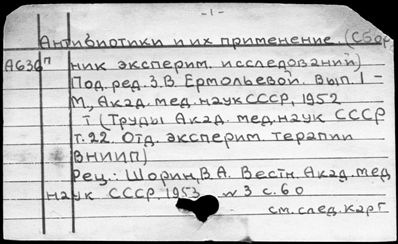 -1-
Антибиотики и их применение. (Сбор
А636п ник эксперим. исследований)
Под. ред. З.В. Ермольевой. Вып. 1 -
М, Акад. мед. наук СССР, 1952
т (Труды Акад. мед. наук СССР
т. 22. Отд. эксперим. терапии
ВНИИП)
Рец.: Шорин, В.А. Вестн. Акад. мед
наук СССР, 1953 № 3 с. 60
см. след. карт